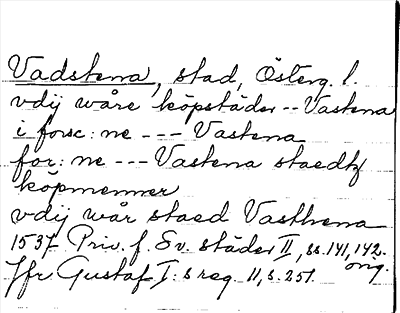 Vadstena, stad, Österg. l.
vdij wåre köpstäder -- Vastena
i forsc: ne --- Vastena
for: ne --- Vastena staedtz
köpmenner
vdij wår staed Vasthena
1537 Priv. f. Sv. städer II, ss. 141, 142.
orig.
Jfr Gustaf I:s reg. 11, s. 251.